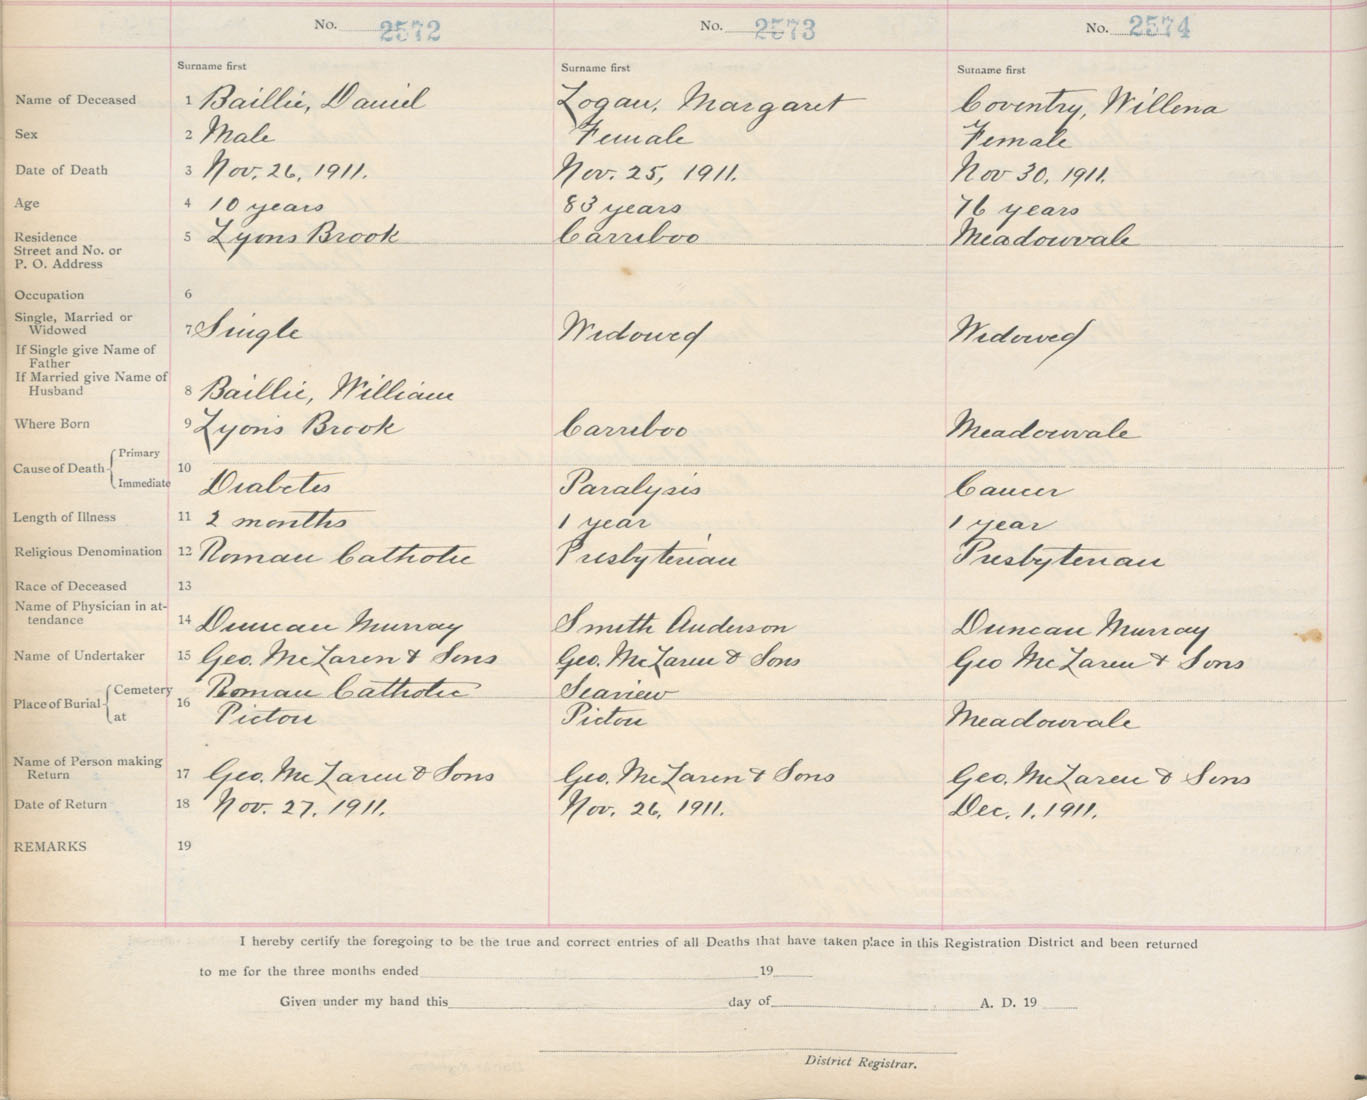 No. 2572 No. 2573 No. 2574
Surname first Surname first Surname first
Name of Deceased 1 Baillie, Daniel Logan, Margaret Coventry, Willena
Sex 2 Male Female Female
Date of Death 3 Nov. 26, 1911. Nov. 25, 1911. Nov 30, 1911.
Age 4 10 years 83 years 76 years
Residence 5 Lyons Brook Carriboo Meadowvale
Street and No. or
P. O. Address
Occupation 6
Single, Married or
Widowed 7 Single Widowed Widowed
If Single give Name of
Father
If Married give Name of
Husband 8 Baillie, William
Where Born 9 Lyons Brook Carriboo Meadowvale
Cause of Death Primary 10
Immediate Diabetes Paralysis Cancer
Length of Illness 11 2 months 1 year 1 year
Religious Denomination 12 Roman Catholic Presbyterian Presbyterian
Race of Deceased 13
Name of Physician in at-
tendance 14 Duncan Murray Smith Anderson Duncan Murray
Name of Undertaker 15 Geo. McLaren & Sons Geo. McLaren & Sons Geo McLaren & Sons
Place of Burial Cemetery 16 Roman Catholic Seaview
at Pictou Pictou Meadowvale
Name of Person making
Return 17 Geo. McLaren & Sons Geo. McLaren & Sons Geo. McLaren & Sons
Date of Return 18 Nov. 27, 1911. Nov. 26, 1911. Dec. 1, 1911.
REMARKS 19
I hereby certify the foregoing to be the true and correct entries of all Deaths that have taken place in this Registration District and been returned
to me for the three months ended 19
Given under my hand this day of A. D. 19
District Registrar.